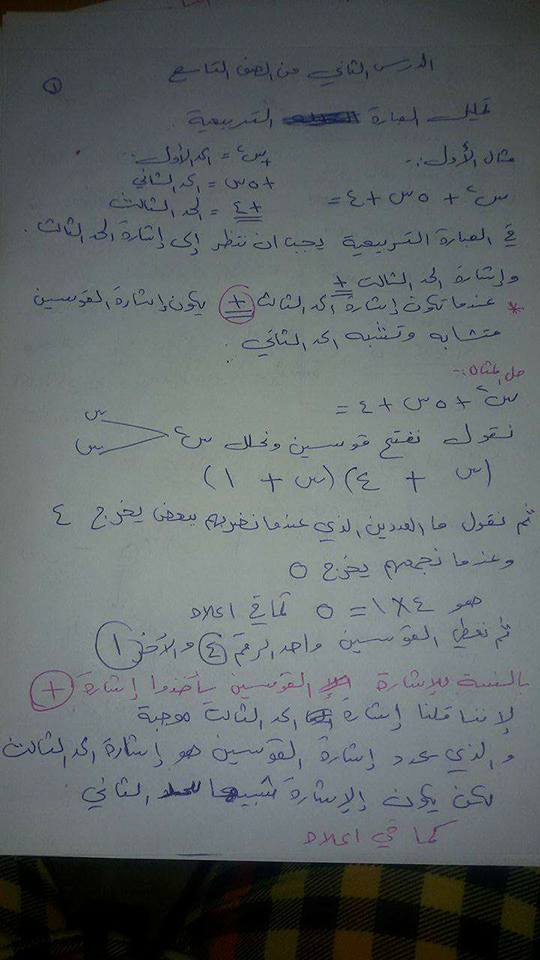 الدرس الثاني من الصف التاسع
١
تحليل العبارة التربيعية
مثال الأول :-
س٢ = الحد الأول
+٥س = الحد الثاني
+٤ = الحد الثالث
س٢ + ٥س + ٤ =
في العبارة التربيعية يجب ان ننظر إلى إشارة الحد الثالث .
وإشارة الحد الثالث +
* عندما تكون إشارة الحد الثالث + يكون إشارة القوسين
متشابه وتشبه الحد الثاني .
حل المثال :-
س٢ + ٥س + ٤ =
نقول نفتح قوسين ونحلل س٢ س س
(س + ٤) (س + ١)
ثم نقول ما العددين الذي عندما نضربهم ببعض يخرج ٤
وعندما نجمعهم يخرج ٥
هو ٤×١ = ٥ كما في اعلاه
ثم نعطي القوسين واحد الرقم ٤ والآخر ١
بالنسبة للإشارة القوسين سيأخذوا إشارة +
لإننا قلنا إشارة الحد الثالث موجبة
والذي يحدد إشارة القوسين هو إشارة الحد الثالث
لكن يكون الإشارة شبيها الثاني .
كما في اعلاه